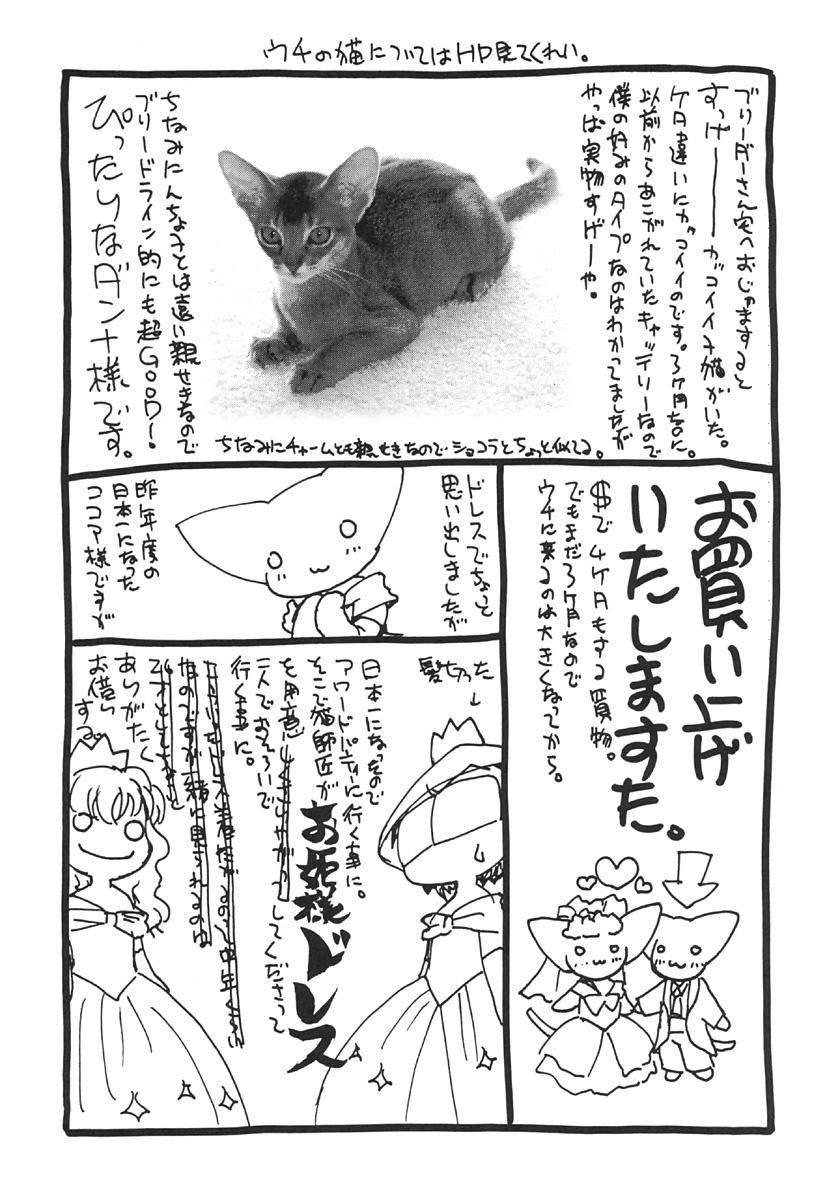 ウチの猫についてはHP見てくれい。
ブリーダーさん宅へおじゃますると
すっげーーーガッコイイ子猫がいた。
ケタ違いにガッコイイのです。3ヶ月なのに。
以前からあこがれていたキャッテリーなので
僕の好みのタイプなのはわかってましたが
やっぱ実物すげーや。
ちなみにんちょ子とは遠い親せきなので
ブリードライン的にも超GOOD!
ぴったりなダンナ様です。
ちなみにチャームとも親せきなのでショコラとちょっと似てる。
お買い上げ
いたしますた。
$で4ケタもする買物。
でもまだ3ヶ月なので
ウチに来るのは大きくなってから。
ドレスでちょっと
思い出しましたが
昨年度の
日本一になった
ココア様ですが
髪切った
↓
日本一になったので
アワードパーティに行く事に。
そこで猫師匠が
お姫様ドレス
を用意しくさりやがってしてくださって
二人でおそろいで
行く事に。
なのですが一緒に見すれるのは
ありがたく
お借り
する。